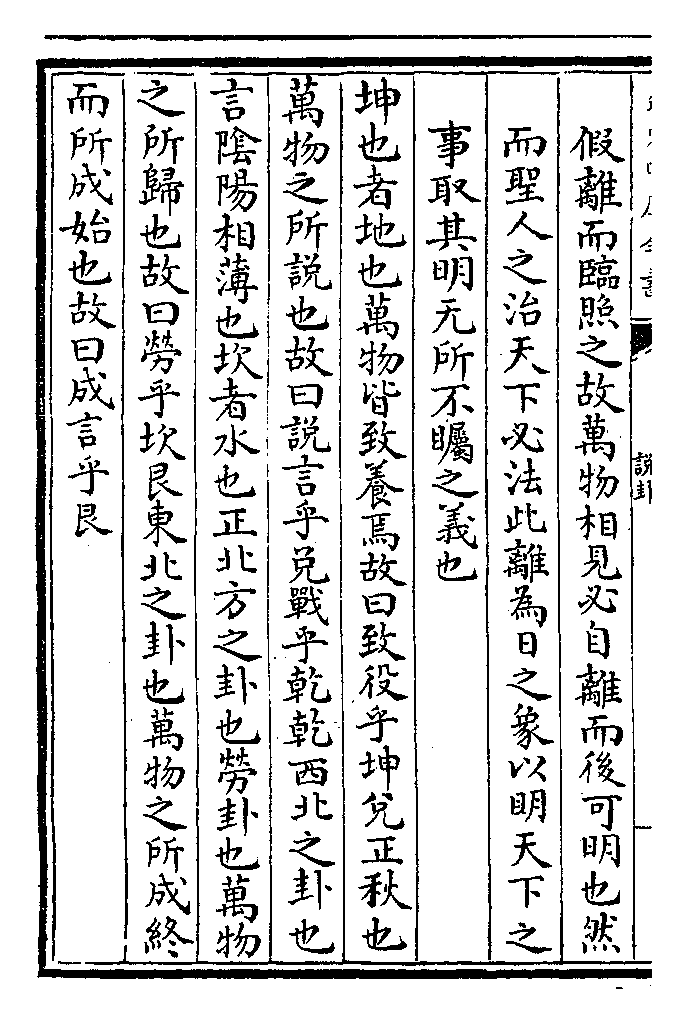 假離而臨照之故萬物相見必自離而後可明也然
而聖人之治天下必法此離為日之象以明天下之
事取其明无所不矚之義也
坤也者地也萬物皆致養焉故曰致役乎坤兌正秋也
萬物之所說也故曰說言乎兌戰乎乾乾西北之卦也
言陰陽相薄也坎者水也正北方之卦也勞卦也萬物
之所歸也故曰勞乎坎艮東北之卦也萬物之所成終
而所成始也故曰成言乎艮
說卦